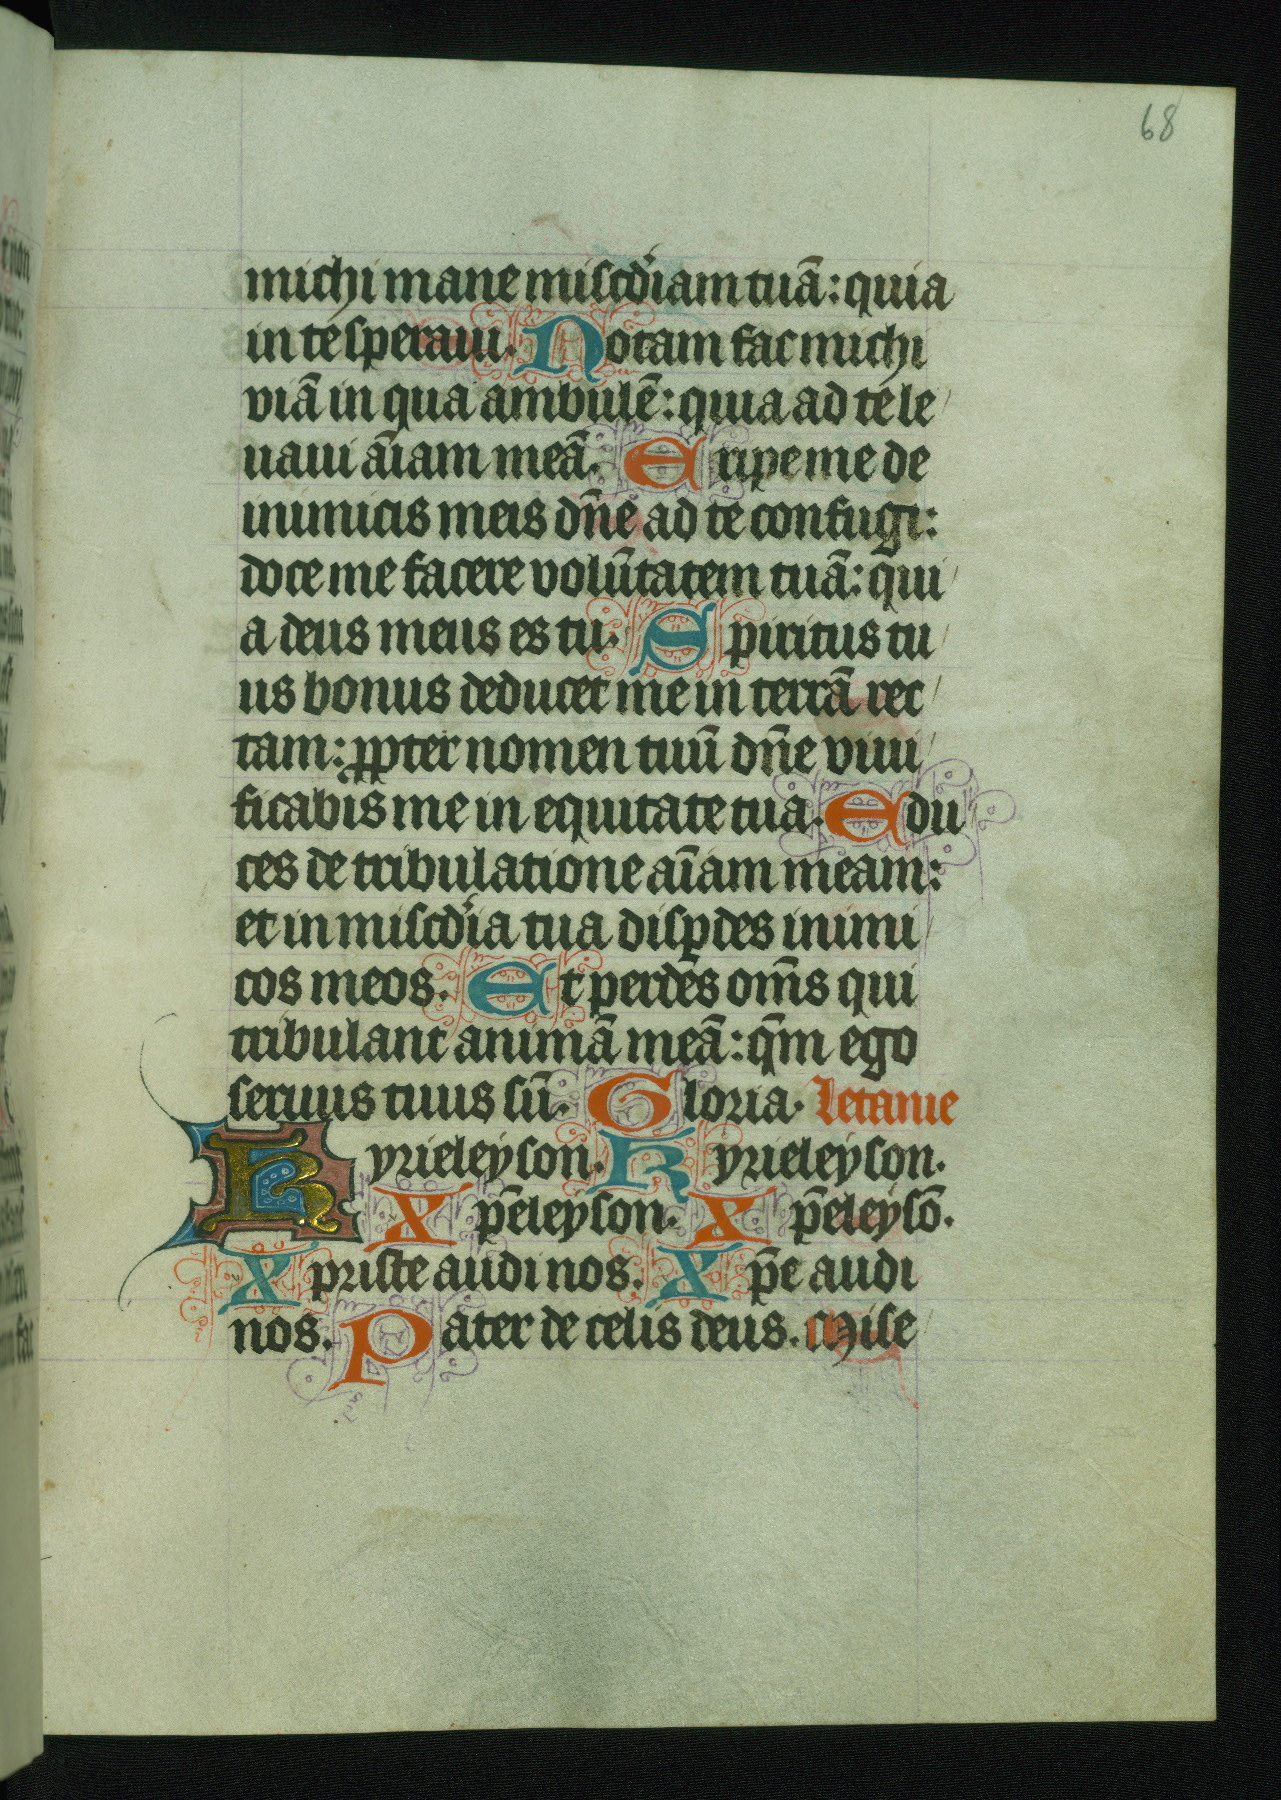 68
michi mane misc̄d̓iam tuā: quia
in te speraui. Notam fac michi
viā in qua ambulē: quia ad te le
uaui āīam meā. Eripe me de
inimicis meis dn̄e ad te confugi:
doce me facere volūtatem tuā: qui
a deus meus es tu. Spiritus tu
us bonus deducet me in terrā rec
tam: ꝓpter nomen tuū dn̄e viui
ficabis me in equitate tua. Edu
ces de tribulatione aīam meam:
et in misc̄d̓ia tua disꝑdes inimi
cos meos. Et perdes om̄s qui
tribulant animā meā: qm̄ ego
seruus tuus sū. Gloria. Letanie
Kyrieleyson. Kyrieleyson.
Xp̄eleyson. Xp̄eleysō.
Xpriste audi nos. Xp̄e audi
nos. Pater de celis deus. Mise